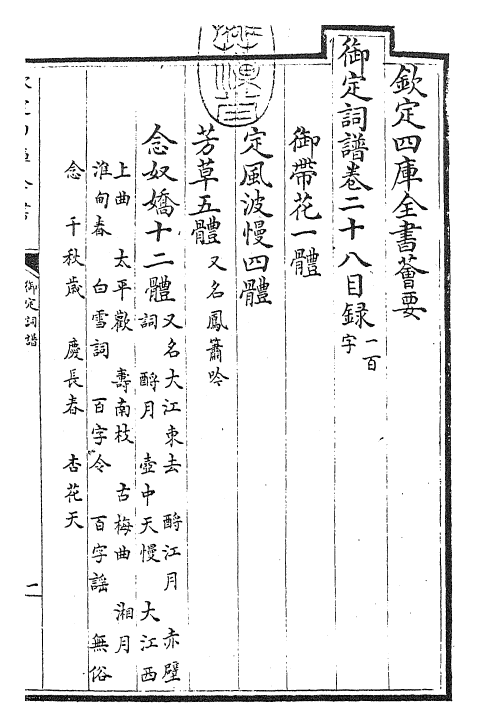 欽定四庫全書薈要
御定詞譜卷二十八目録
一百
字
御帶花一體
定風波慢四體
芳草五體 又名鳳簫吟
念奴嬌十二體
又名大江東去 酹江月 赤壁
詞 酹月 壺中天慢 大江西
上曲 太平歡 壽南枝 古梅曲 湘月
淮甸春 白雪詞 百字令 百字謠 無俗
念 千秋歲 慶長春 杏花天
御定詞譜
一